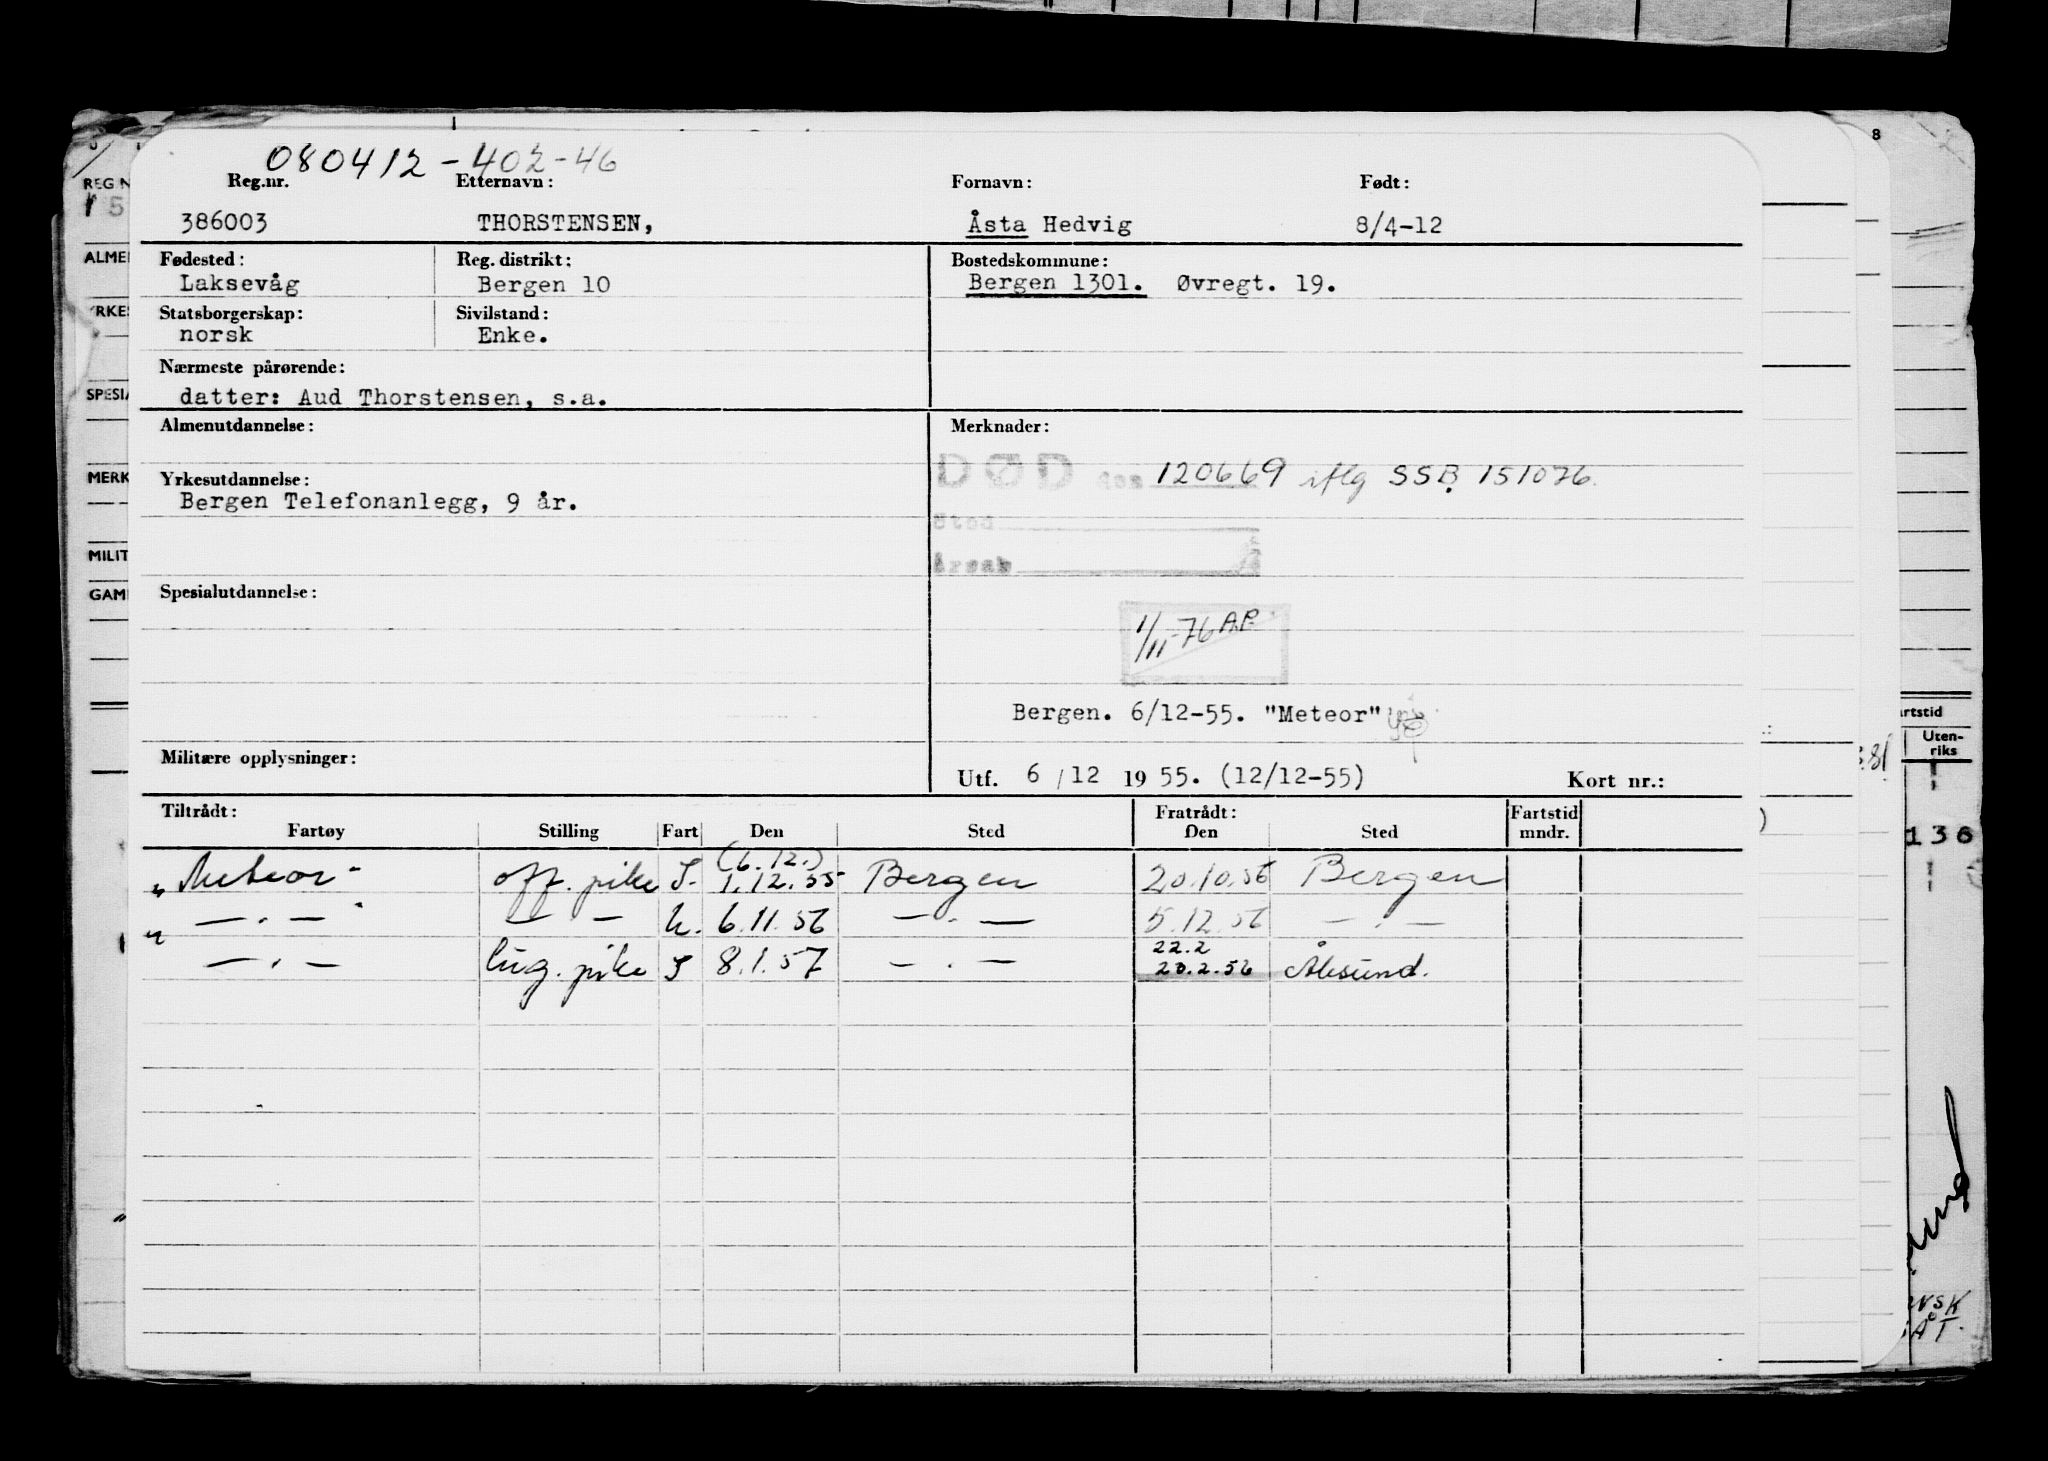 080412-402-46
Reg.nr. Etternavn: Fornavn: Født:
386003 THORSTENSEN, Åsta Hedvig 8/4-12
Fødested: Reg. distrikt: Bostedskommune:
Laksevåg Bergen 10 Bergen 1301. Øvregt. 19.
Statsborgerskap: Sivilstand:
norsk Enke.
Nærmeste pårørende:
datter: Aud Thorstensen, s.a.
Almenutdannelse: Merknader:
DØD den 120669 iflg SSB 151076.
Yrkesutdannelse:
Bergen Telefonanlegg, 9 år.
Sted
Årsak
Spesialutdannelse:
1/11-76 A.P.
Bergen. 6/12-55. "Meteor"
Militære opplysninger:
Utf. 6/12 1955. (12/12-55) Kort nr.:
Tiltrådt: Fratrådt: Fartstid
Fartøy Stilling Fart Den Sted Den Sted mndr.
(6.12.)
"Meteor" off. pike S. 1.12.55 Bergen 20.10.56 Bergen
" — . — " — — U. 6.11.56 — . — 5.12.56 — . —
22.2
— . — lug. pike S 8.1.57 — . — 20.2.56 Ålesund.
REG N
ALMEN
YRKES
SPESIA
MERK
MILIT
GAM
8
Uten-
riks
136